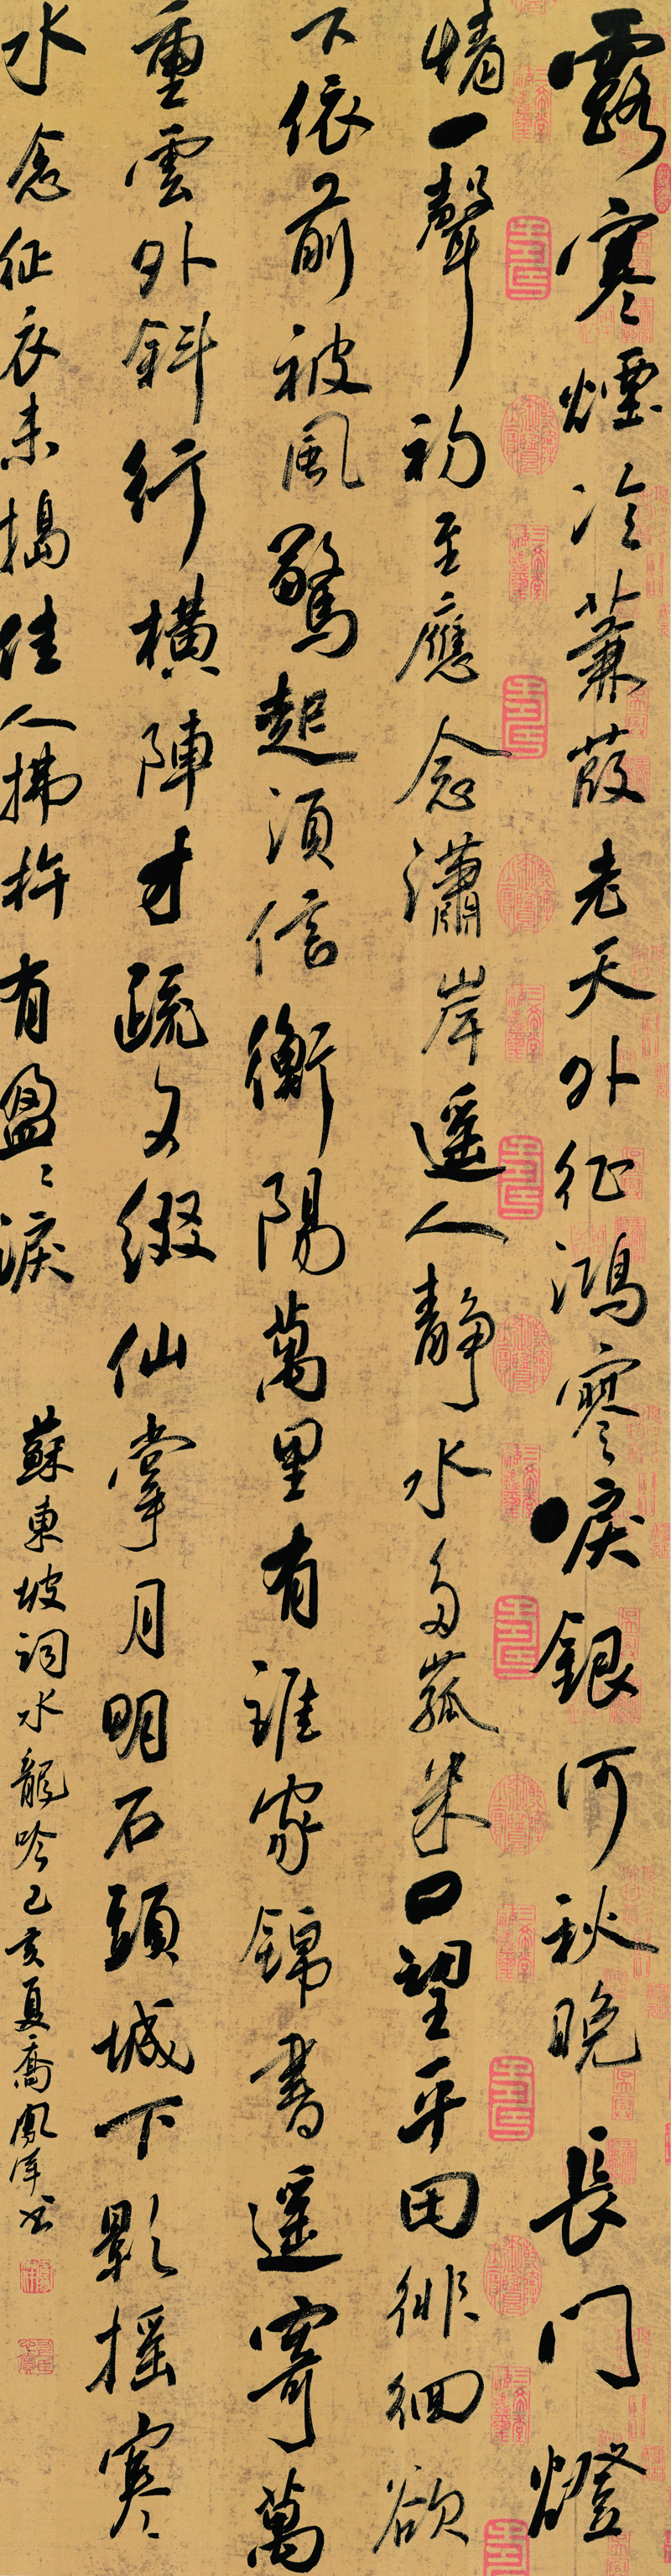 露寒煙冷蒹葭老天外征鴻寥唳銀河秋晚長門燈
情一聲初至應念瀟岸遥人靜水多菰米口望平田徘徊欲
下依前被風驚起須信衡陽萬里有誰家錦書遥寄萬
重雲外斜行橫陣才疏又綴仙掌月明石頭城下影摇寒
水念征衣未搗佳人拂杵有盈〻淚
蘇東坡詞水龍吟己亥夏喬鳳书